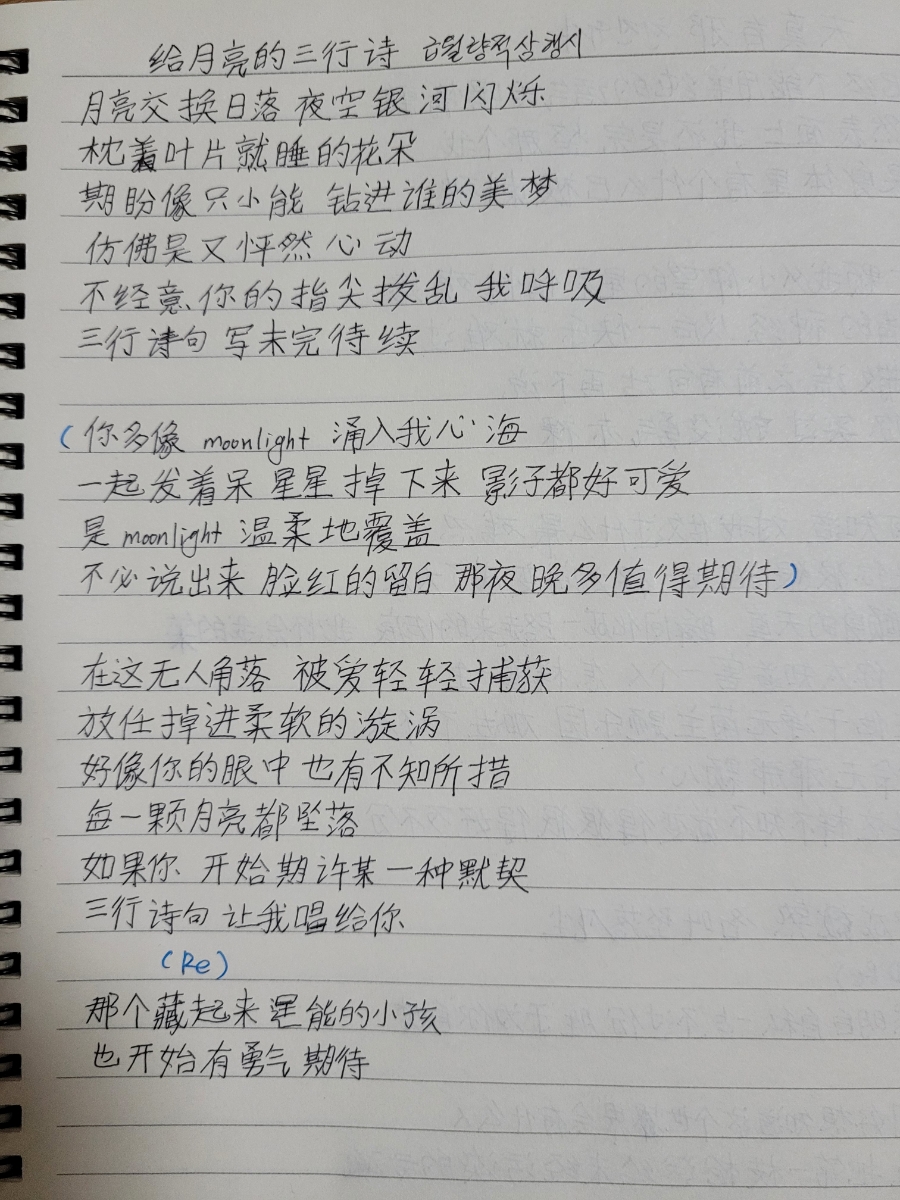 给月亮的三行诗 급월량적삼행시
月亮交换日落 夜空银河闪烁
枕着叶片就睡的花朵
期盼像只小能 钻进谁的美梦
仿佛是又怦然心动
不经意你的指尖拨乱 我呼吸
三行诗句 写未完待续
(你多像 moonlight 涌入我心海
一起发着呆 星星掉下来 影子都好可爱
是 moonlight 温柔地覆盖
不必说出来 脸红的留白 那夜晚多值得期待)
在这无人角落 被爱轻轻捕获
放任掉进柔软的漩涡
好像你的眼中也有不知所措
每一颗月亮都坠落
如果你 开始期许某一种默契
三行诗句 让我唱给你
(Re)
那个藏起来 能的小孩
也开始有勇气 期待